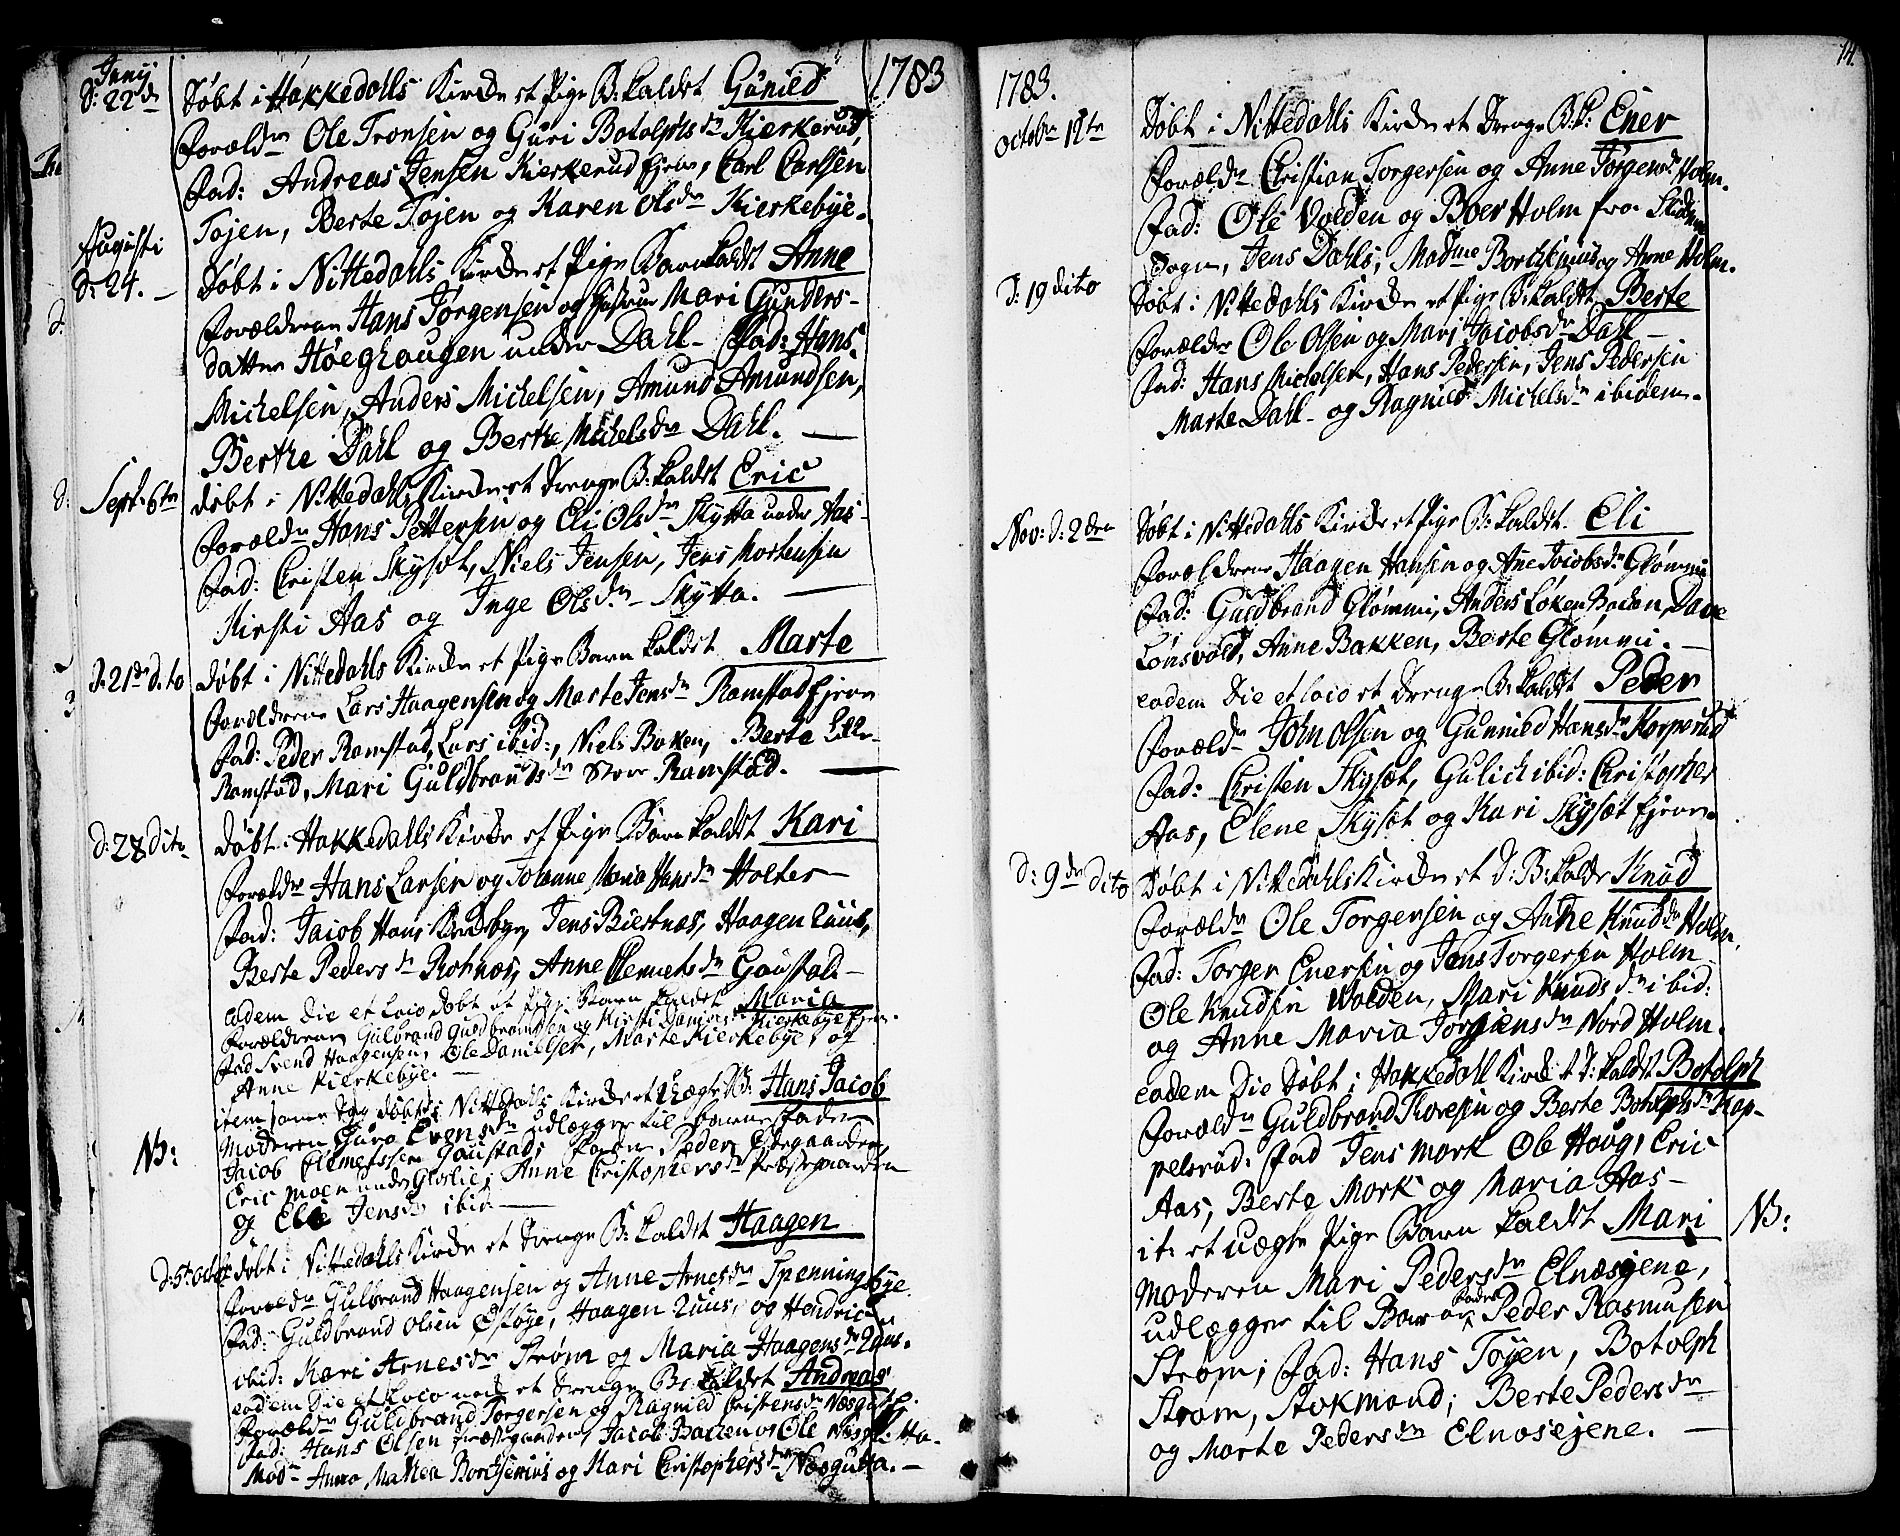 1783
Junij
d: 22de Døbt i Hakkedahls Kirche et Pige B: kaldet Gunild
Forældre Ole Tronsen og Guri Botolphsdr Kierkerud,
Fad: Andreas Jensen Kierkerud Ejere, Carl Carlsen
Tøjen, Berte Tøjen og Karen Olsdr Kierkebye.
Augusti
d: 24. — Døbt i Nittedahls Kirche et Pige Barn kaldet Anne
Forældrene Hans Jørgensen og hustrue Mari Gunders-
datter Høeghaugen under Dahl - Fad: Hans
Michelsen, Anders Michelsen, Amund Amundsen,
Berthe Dahl og Berthe Michelsdr Dahl. —
Sept: 6te døbt i Nittedahls Kirche et Drenge B: kaldet Eric
Foreldr Hans Pettersen og Eli Olsdr Skytta under Aas-
Fad: Christen Skysæt, Niels Jensen, Jens Mortensen
Kirsti Aas og Inge Olsdr Skytta. —
d: 21de dito døbt i Nittedahls Kirche et Pige Barn kaldet Marte
Forældrene Lars Haagensen og Marte Jensdr Ramstad Ejere
Fad: Peder Ramstad, Lars ibid:, Niels Baken, Berte Lille-
Ramstad, Mari Guldbrandsdr Store Ramstad. —
d: 28 dito døbt i Hakkedahls Kirche et Pige Barn kaldet Kari
Forældre Hans Larsen og Johanne Maria Hansdr Holter —
Fad: Jacob Hans Kirkebye, Jens Biertnæs, Haagen Quus,
Berte Pedersdr Rotnæs, Anne Clemetsdr Gaustad —
eadem Die et Loco døbt et Pige Barn kaldet Maria
Forældrene Gulbrand Guldbrandsen og Kirsti Danielsdr Kierkebye Ejere.
Fad Svend Haagensen, Ole Danielsen, Marte Kierkebye, og
Anne Kierkebye. —
NB: item samme Dag døbt i Nittedahls Kirche et Uægte B: Hans Jacob
Moderen Guro Evensdr udlægger til barnefader
Jacob Clemetssen Gaustad, Fadere Peder Ødegaarden
Eric Moen under Glørlie, Anne Christophersdr Præstegaarden
og Elie Jensdr ibid —
d: 5te octobr døbt i Nittedahls Kirche et Drenge B: kaldet Haagen
Foreldr Gulbrand Haagensen og Anne Arnesdr Spenningbye.
Fad: Guldbrand Olsen Østbye, Haagen Quus, og Hendric
ibid: Kari Arnesdr Strøm og Maria Haagensdr Quus.
eadem Die et Loco nok et Drenge B: kaldet Andreas
Foreldr Guldbrand Torgersen og Ragnild Christensdr Næsgutta.
Fad: Hans Olsen Præstegaarden, Jacob Bakken og Ole Næsgutta.
Mad: Anna Mathea Borchsenius og Kari Christophersdr Næsgutta. —
14.
1783.
octobr 12te Døbt i Nittedahls Kirche et Drenge B: k: Ener
Forældr Christian Torgersen og Anne Jørgensdr Holm.
Fad: Ole Volden og Boer Holm fra Skidsmo
Sogn, Jens Dahls, Madme Borchsenius og Anne Holm.
d: 19 dito Døbt i Nittedahls Kirche et Pige B: kaldet Berte
Forældre Ole Olsen og Mari Jacobsdr Dahl —
Fad: Hans Michelsen, Hans Pedersen, Jens Pedersen
Marte Dahl - og Ragnild Michelsdr ibidem.
Nov: d: 2den Døbt i Nittedahls Kirche et Pige B: kaldet Eli
Forældrene Haagen Hansen og Ane Jacobsdr Glømmi
Fad: Guldbrand Glømmi, Anders Løken Bachen, Dave
Lønsvold, Anne Bakken, Berte Glømmi. —
eadem Die et loco et Drenge B: kaldet Peder
Foreldr John Olsen og Gunnild Hansdr Korperud
Fad: Christen Skysæt, Gulich ibid: Christopher
Aas, Elene Skysæt og Kari Skysæt Ejere.
d: 9de dito Døbt i Nittedahls Kirche et D: B: kaldet Knud
Foreldr Ole Torgersen og Anne Knudsdr Holm.
Fad: Torger Enersen og Jens Torgersen Holm
Ole Knudsen Wolden, Mari Knudsdr ibid:
og Anne Maria Jørgensdr Nord Holm.
eadem Die Døbt i Hakkedahl Kirche et D: kaldet Botolph
Foreldr Guldbrand Thoresen og Berte Botolphsdr Kap-
pelsrud: Fad Jens Mork Ole Haug, Eric
Aas, Berte Mork og Maria Aas —
it: et uægte Pige Barn kaldet Mari NB:
Moderen Mari Pedersdr Elnæsejene,
udlægger til Barnefader Peder Rasmusen
Strøm; Fad: Hans Tøyen, Botolph
Strøm, Stokmand; Berte Pedersdr
og Marte Pedersdr Elnæsejene. —